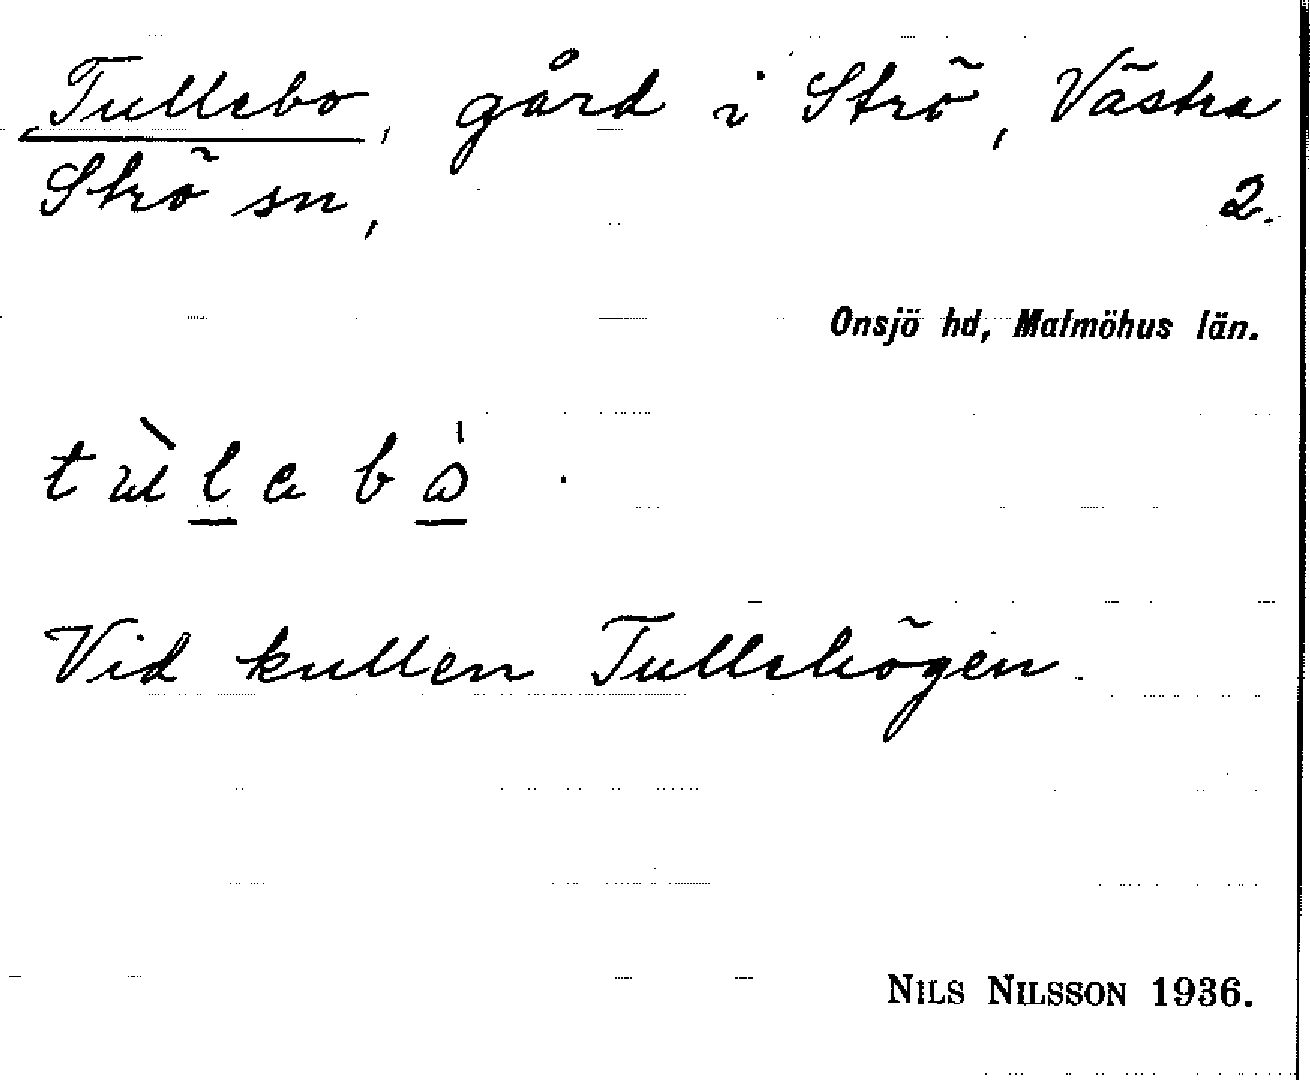 Tullebo, gård i Strö, Västra
Strö sn, 2.
Onsjö hd, Malmöhus län.
Vid kullen Tullehögen.
NILS NILSSON 1936.